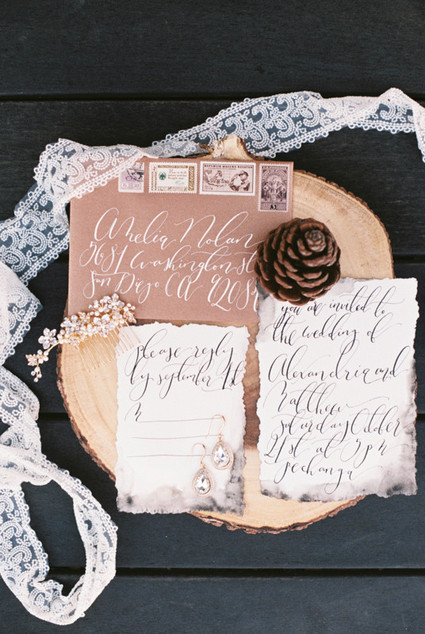 Amelia Nolan
5681 Washington St
San Diego CA 92081
you are invited to
the wedding of
Alexandria and
Matthew
saturday October
21st at 5pm
please reply
by september 1st
M